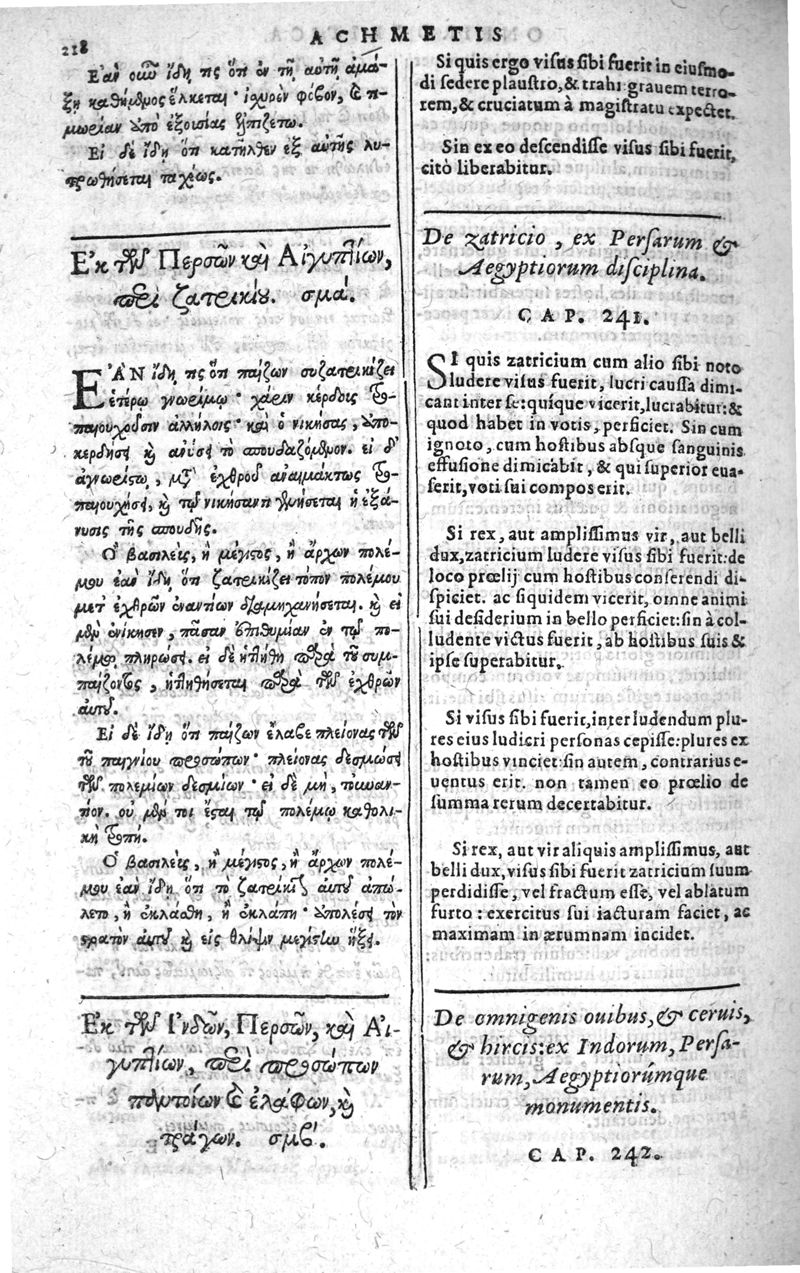 218
ACHMETIS
Ἐὰν οὖν ἴδῃ τις ὅτι ἐν τῇ αὐτῇ ἁμά-
ξῃ καθήμενος ἕλκεται· ἰσχυρὸν φόβον, καὶ τι-
μωρίαν ὑπὸ ἐξουσίας ἐλπιζέτω.
Εἰ δὲ ἴδῃ ὅτι κατῆλθεν ἐξ αὐτῆς λυ-
τρωθήσεται ταχέως.
Ἐκ τῶν Περσῶν καὶ Αἰγυπτίων,
περὶ ζατρικίου. σμαʹ.
ΕΑΝ ἴδῃ τις ὅτι παίζων συζατρικίζει
ἑτέρῳ γνωρίμῳ· χάριν κέρδους ἐπι-
παιουχοῦσιν ἀλλήλοις· καὶ ὁ νικήσας, ὑπο-
κερδήσει καὶ ἀνύσει τὸ σπουδαζόμενον. εἰ δʹ
ἀγνωρίστῳ, μετʹ ἐχθροῦ ἀναιμάκτως
καὶ τῷ νικήσαντι γενήσεται ἡ ἐξά-
νυσις τῆς σπουδῆς.
Ὁ βασιλεὺς, ἢ μέγιστος, ἢ ἄρχων πολέ-
μου ἐὰν ἴδῃ ὅτι ζατρικίζει τόπον πολέμου
μετʹ ἐχθρῶν ἐναντίων διαμηχανήσεται. καὶ εἰ
μὲν ἐνίκησεν, πᾶσαν ἐπιθυμίαν ἐν τῷ πο-
λέμῳ πληρώσει. εἰ δὲ ἡττήθη παρὰ τοῦ συμ-
παίζοντος, ἡττηθήσεται παρὰ τῶν ἐχθρῶν
αὐτοῦ.
Εἰ δὲ ἴδῃ ὅτι παίζων ἔλαβε πλείονας τῶν
τοῦ παιγνίου προσώπων· πλείονας δεσμώσει
τῶν πολεμίων δεσμίων· εἰ δὲ μὴ, τοὐναν-
τίον. οὐ μέν τοι ἔσται τῷ πολέμῳ καθολι-
κὴ τροπή.
Ὁ βασιλεὺς, ἢ μέγιστος, ἢ ἄρχων πολέ-
μου ἐὰν ἴδῃ ὅτι τὸ ζατρίκιν αὐτοῦ ἀπώ-
λετο, ἢ ἐκλάσθη, ἢ ἐκλάπη· ἀπολέσει τὸν
στρατὸν αὐτοῦ καὶ εἰς θλίψιν μεγίστην ἥξει.
Ἐκ τῶν Ἰνδῶν, Περσῶν, καὶ Αἰ-
γυπτίων, περὶ προσώπων
καὶ ἐλάφων, καὶ
τράγων. σμβʹ.
Si quis ergo visus sibi fuerit in eiusmo-
di sedere plaustro, & trahi grauem terro-
rem, & cruciatum à magistratu expectet.
Sin ex eo descendisse visus sibi fuerit,
citò liberabitur.
De zatricio, ex Persarum &
Aegyptiorum disciplina.
CAP. 241.
SI quis zatricium cum alio sibi noto
ludere visus fuerit, lucri caussa dimi-
cant inter se: quisque vicerit, lucrabitur: &
quod habet in votis, perficiet. Sin cum
ignoto, cum hostibus absque sanguinis
effusione dimicabit, & qui superior eua-
serit, voti sui compos erit.
Si rex, aut amplissimus vir, aut belli
dux, zatricium ludere visus sibi fuerit: de
loco prœlij cum hostibus conserendi di-
spiciet. ac siquidem vicerit, omne animi
sui desiderium in bello perficiet: sin à col-
ludente victus fuerit, ab hostibus suis &
ipse superabitur.
Si visus sibi fuerit, inter ludendum plu-
res eius ludicri personas cepisse: plures ex
hostibus vinciet: sin autem, contrarius e-
uentus erit. non tamen eo prœlio de
summa rerum decertabitur.
Si rex, aut vir aliquis amplissimus, aut
belli dux, visus sibi fuerit zatricium suum
perdidisse, vel fractum esse, vel ablatum
furto: exercitus sui iacturam faciet, ac
maximam in ærumnam incidet.
De omnigenis ouibus, & ceruis,
& hircis: ex Indorum, Persa-
rum, Aegyptiorúmque
monumentis.
CAP. 242.